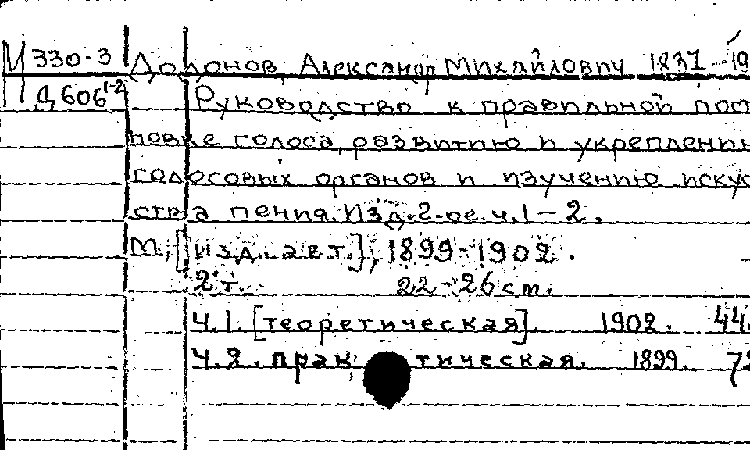 М 330-3 Додонов, Александр Михайлович 1837-19
Д 606 1-2 Руководство к правильной пост
новке голоса, развитию и укреплению
голосовых органов и изучению искус
ства пения. Изд. 2-ое. ч. 1-2.
М., [изд. авт.], 1899-1902.
2 т. 22-26 см.
Ч. 1. [теоретическая]. 1902. 44
Ч. 2. практическая. 1899. 7